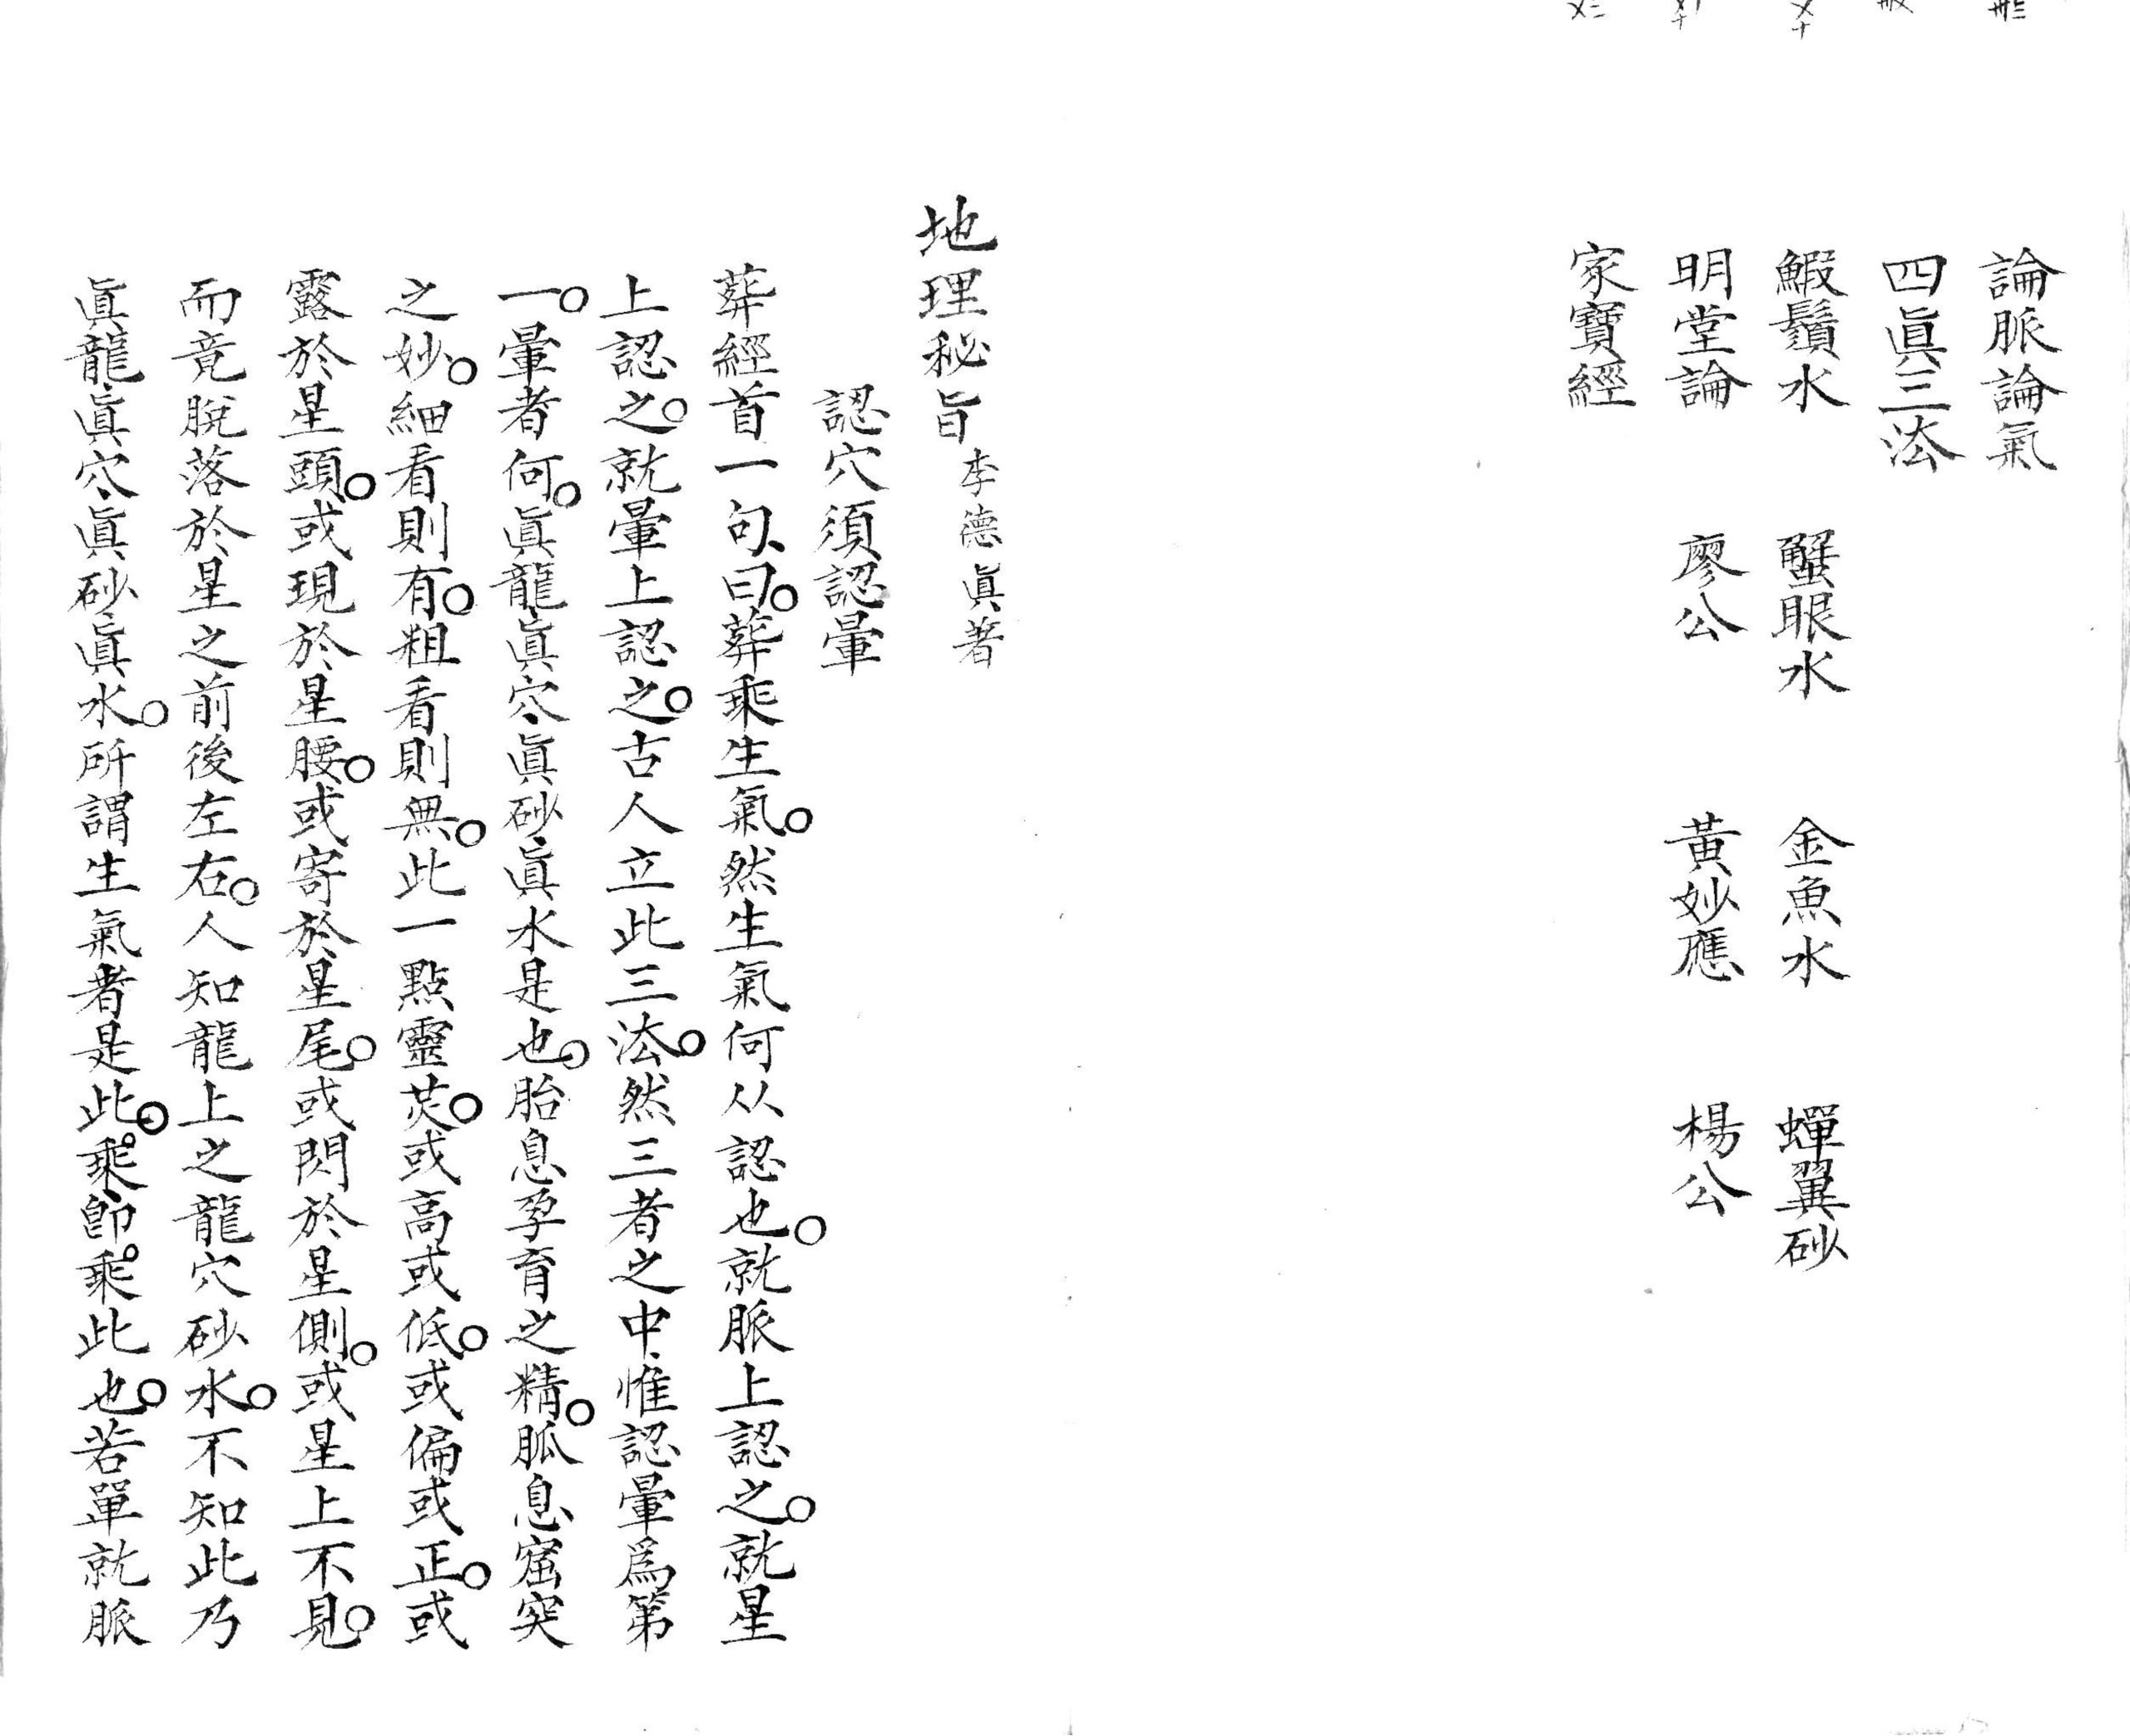 論脈論氣
四眞三法
鰕鬚水 蟹眼水 金魚水 蟬翼砂
明堂論 廖公 黃妙應 楊公
家寶經
地理秘旨 李德眞著
認穴須認暈
葬經首一句、曰。葬乘生氣。然生氣何从認也。就脈上認之。就星
上認之。就暈上認之。古人立此三法。然三者之中、惟認暈爲第
一。暈者何。眞龍、眞穴、眞砂、眞水是也。胎息孕育之精。胍息窟突
之妙。細看則有。粗看則無。此一點靈荧。或高或低。或偏或正。或
露於星頭。或現於星腰。或寄於星尾。或閃於星側。或星上不見。
而竟脫落於星之前後左右。人知龍上之龍穴砂水。不知此乃
眞龍、眞穴、眞砂、眞水。所謂生氣者是此。乘即乘此也。若單就脈